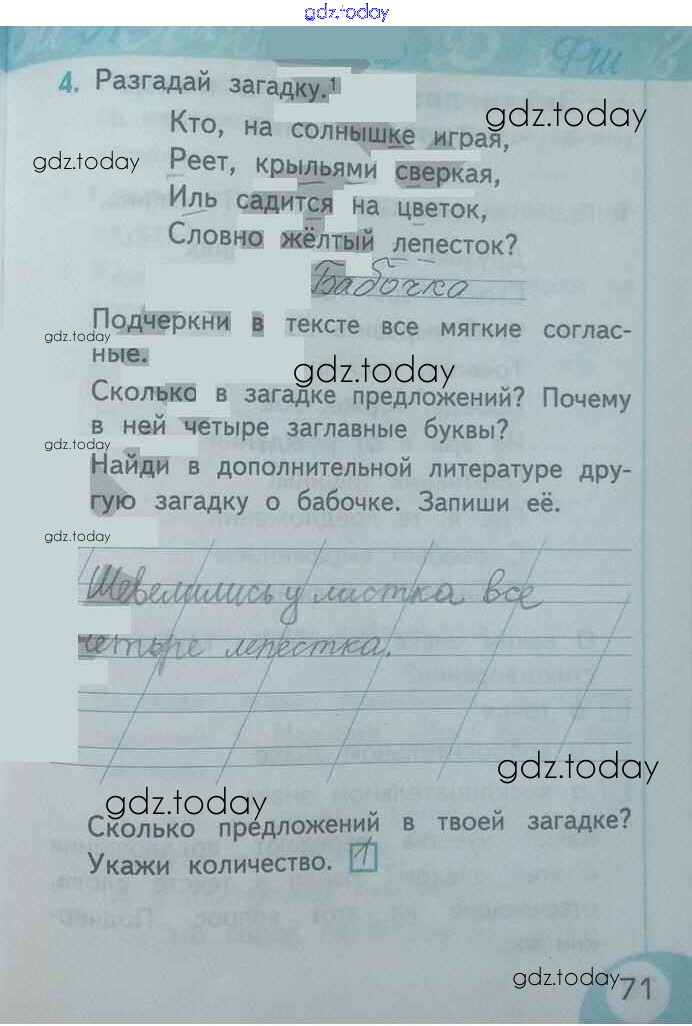 gdz.today
Фш в
4. Разгадай загадку.¹
gdz.today
Кто, на солнышке играя,
gdz.today
Реет, крыльями сверкая,
Иль садится на цветок,
Словно жёлтый лепесток?
Бабочка
Подчеркни в тексте все мягкие соглас-
gdz.today
ные.
gdz.today
Сколько в загадке предложений? Почему
в ней четыре заглавные буквы?
gdz.today
Найди в дополнительной литературе дру-
гую загадку о бабочке. Запиши её.
gdz.today
Шевелились у листка все
четыре лепестка.
gdz.today
gdz.today
Сколько предложений в твоей загадке?
Укажи количество. 1
gdz.today
71